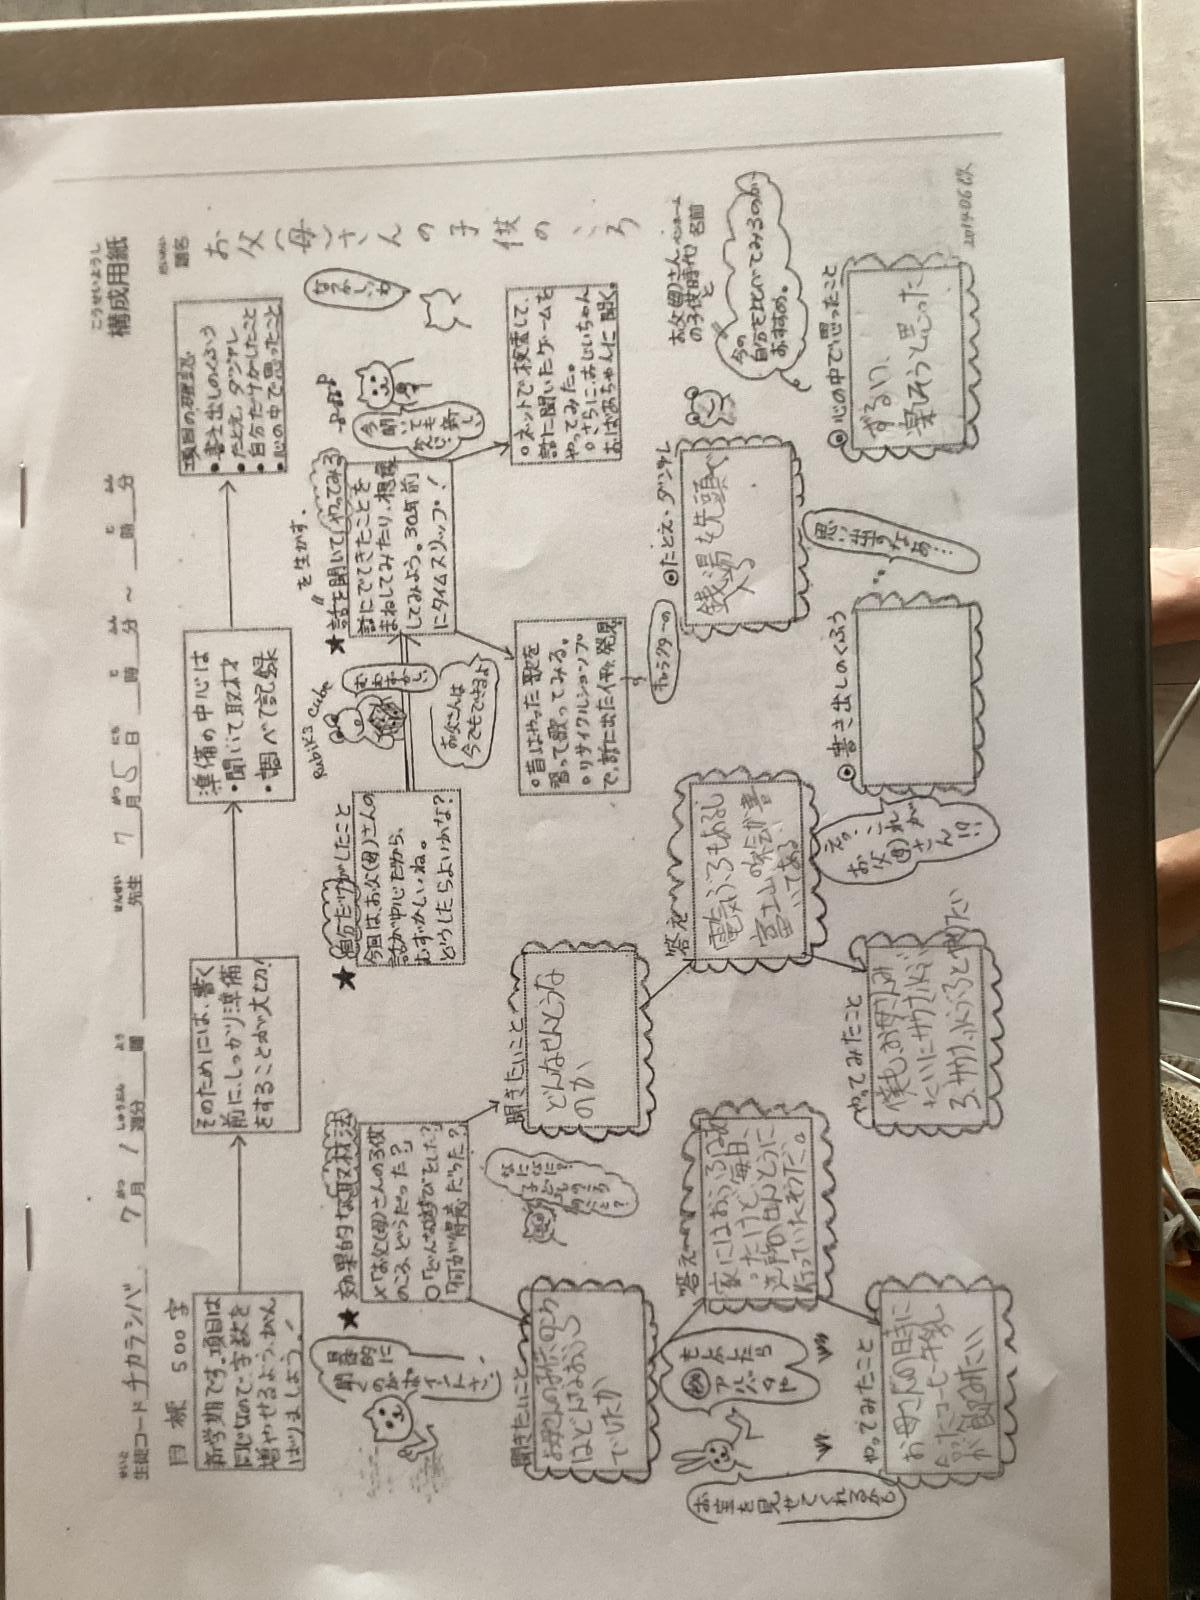 こうせいようし
構成用紙
だいめい
題名
お父(母)さんの子供のころ
せいと
生徒コード チカラシバ
7月1週分
曜
先生
7月5日
時 分 ～ 時 分
目標 500字
新学期です。項目は
同じなので、字数を
増やせるよう、がん
ばりましょう!
そのためには、書く
前に、しっかり準備
をすることが大切!
準備の中心は
・聞いて取材
・調べて記録
項目の確認
・書き出しのくふう
・たとえ、ダジャレ
・自分だけがしたこと
・心の中で思ったこと
★効果的な取材法
×「お父(母)さんの子供
のころ、どうだった?」
○「どんな遊びをした?」
「何が得意だった?」
具体的に
聞くのが
ポイント
さ!
★自分だけがしたこと
今回は、お父(母)さんの
話が中心だから、
むずかしいね。
どうしたらよいかな?
Rubik's Cube
お父さんは
今でもできるよ
を生かす。
★話を聞いてやってみる
話にでてきたことを
まねしてみたり、想像
してみよう。30年前
にタイムスリップ!
今
聞いても
新しい
なつかしいね
○昔はやった歌を
習って歌ってみる。
○リサイクルショップ
で、話に出た作を発見
○ネットで検索して、
話に聞いたゲームを
やってみた。
○さらに、おじいちゃん
おばあちゃんに聞く。
聞きたいこと
お母さんの子供のころ
はどんなおふろ
でしたか
聞きたいこと
どんなせんとうな
のか
答え
家にはおふろはあ
ったけど、毎日、
近所のせんとうに
行っていたそうだ。
答え
電気ぶろもあるし
富士山の絵が書
いてある
もしかしたら
アルバムや
お宝を見せてくれるかも
やってみたこと
お母さんの時に
言ったコーヒー牛乳
が飲みたい
やってみたこと
僕もお母さんみ
たいにサウナ、水ぶ
ろ、サウナ、水ぶろとやりたい
えっ、
これが
お父(母)さん!?
◎たとえ・ダジャレ
銭湯も先頭で
入る
キャラクターの
名前
◎書き出しのくふう
思い出すなあ…
◎心の中で思ったこと
ずるい、
楽しそうと思った
お父(母)さん
の子供時代と
今の
自分を比べてみるのが、
おすすめ。